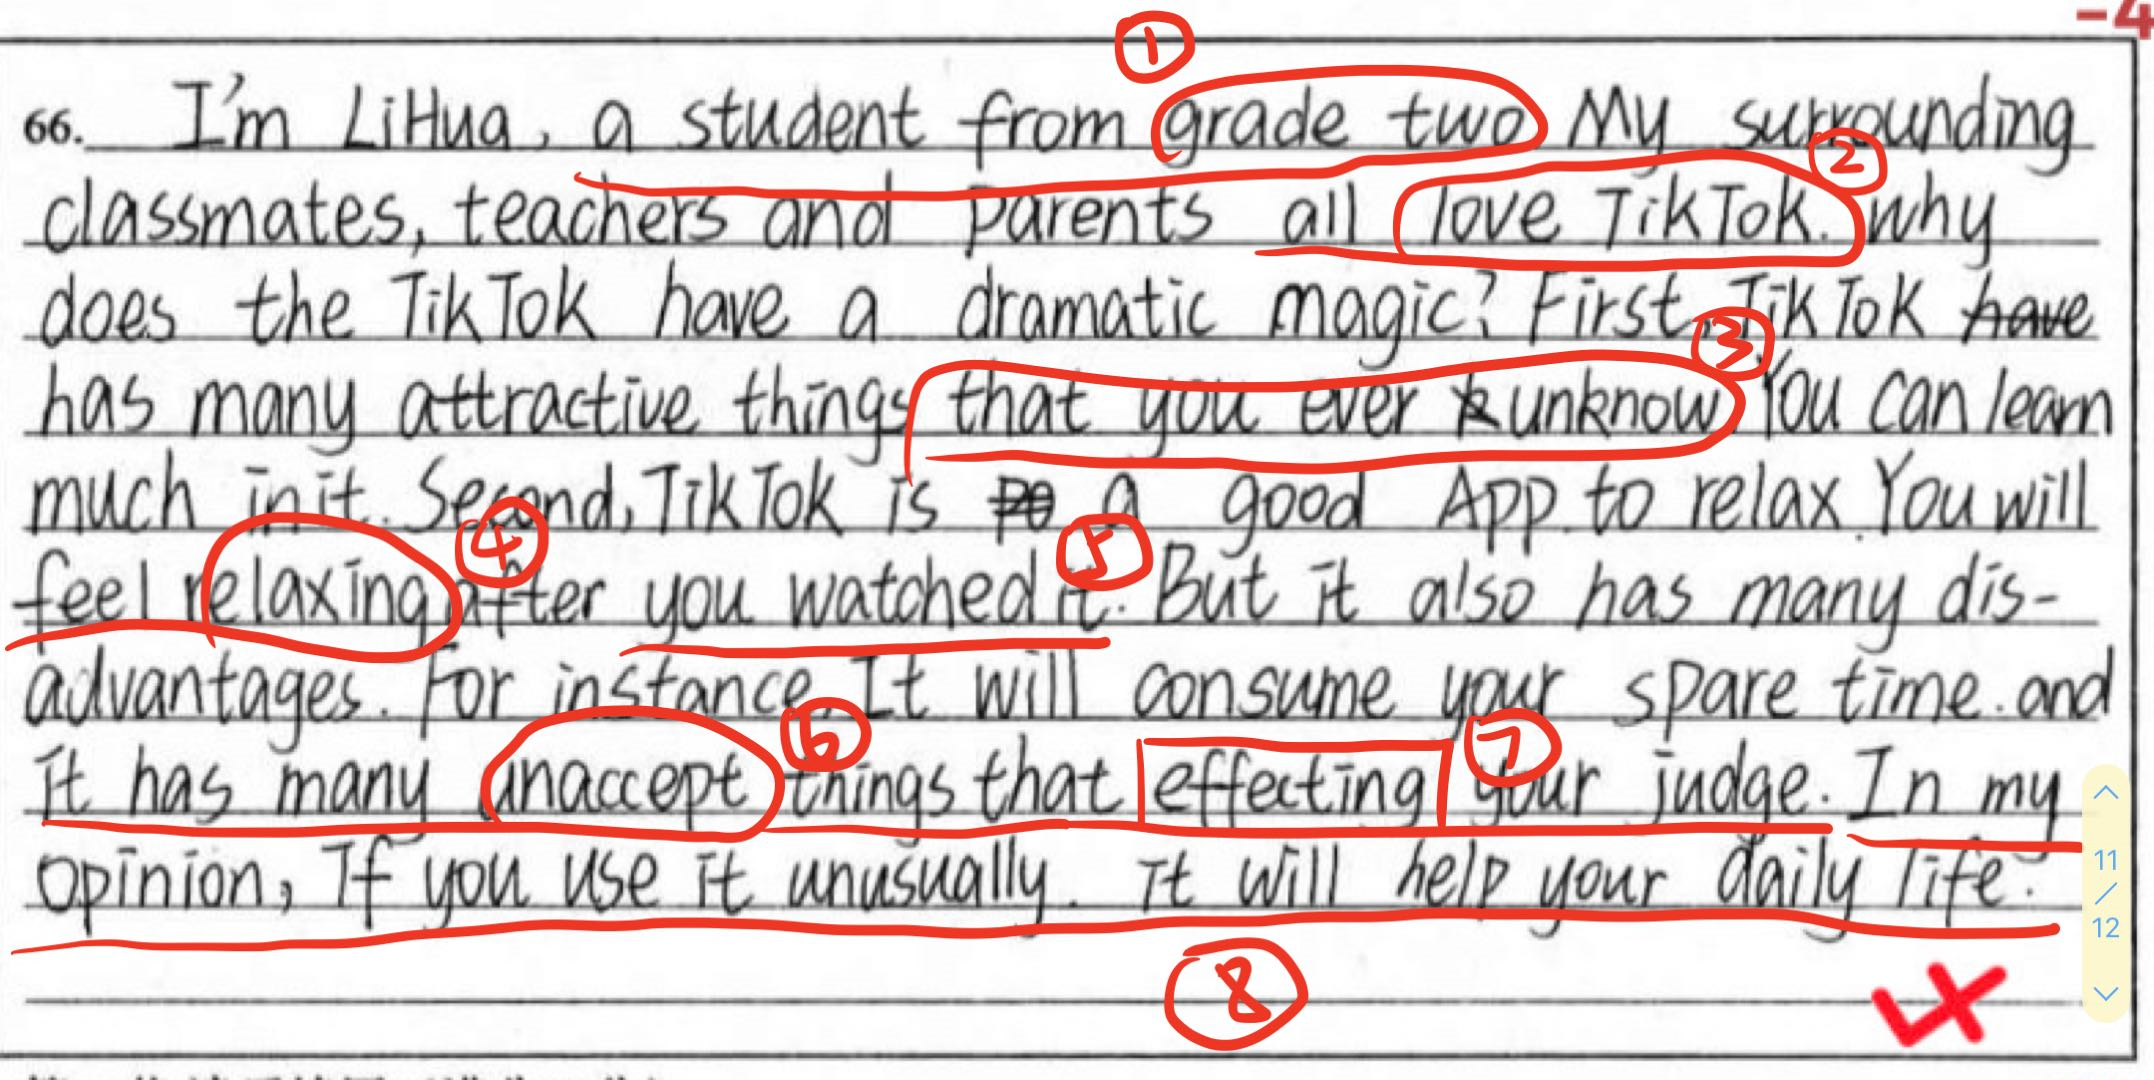 -4
①
66. I'm LiHua, a student from grade two My surrounding
②
classmates, teachers and parents all love TikTok. why
does the TikTok have a dramatic magic? First, TikTok have
③
has many attractive things that you ever unknow You can learn
much in it. Second, TikTok is a good App to relax. You will
④ ⑤
feel relaxing after you watched it. But it also has many dis-
advantages. For instance, It will consume your spare time. and
⑥ ⑦
it has many unaccept things that effecting your judge. In my
opinion, If you use it unusually. it will help your daily life.
⑧
11
/
12